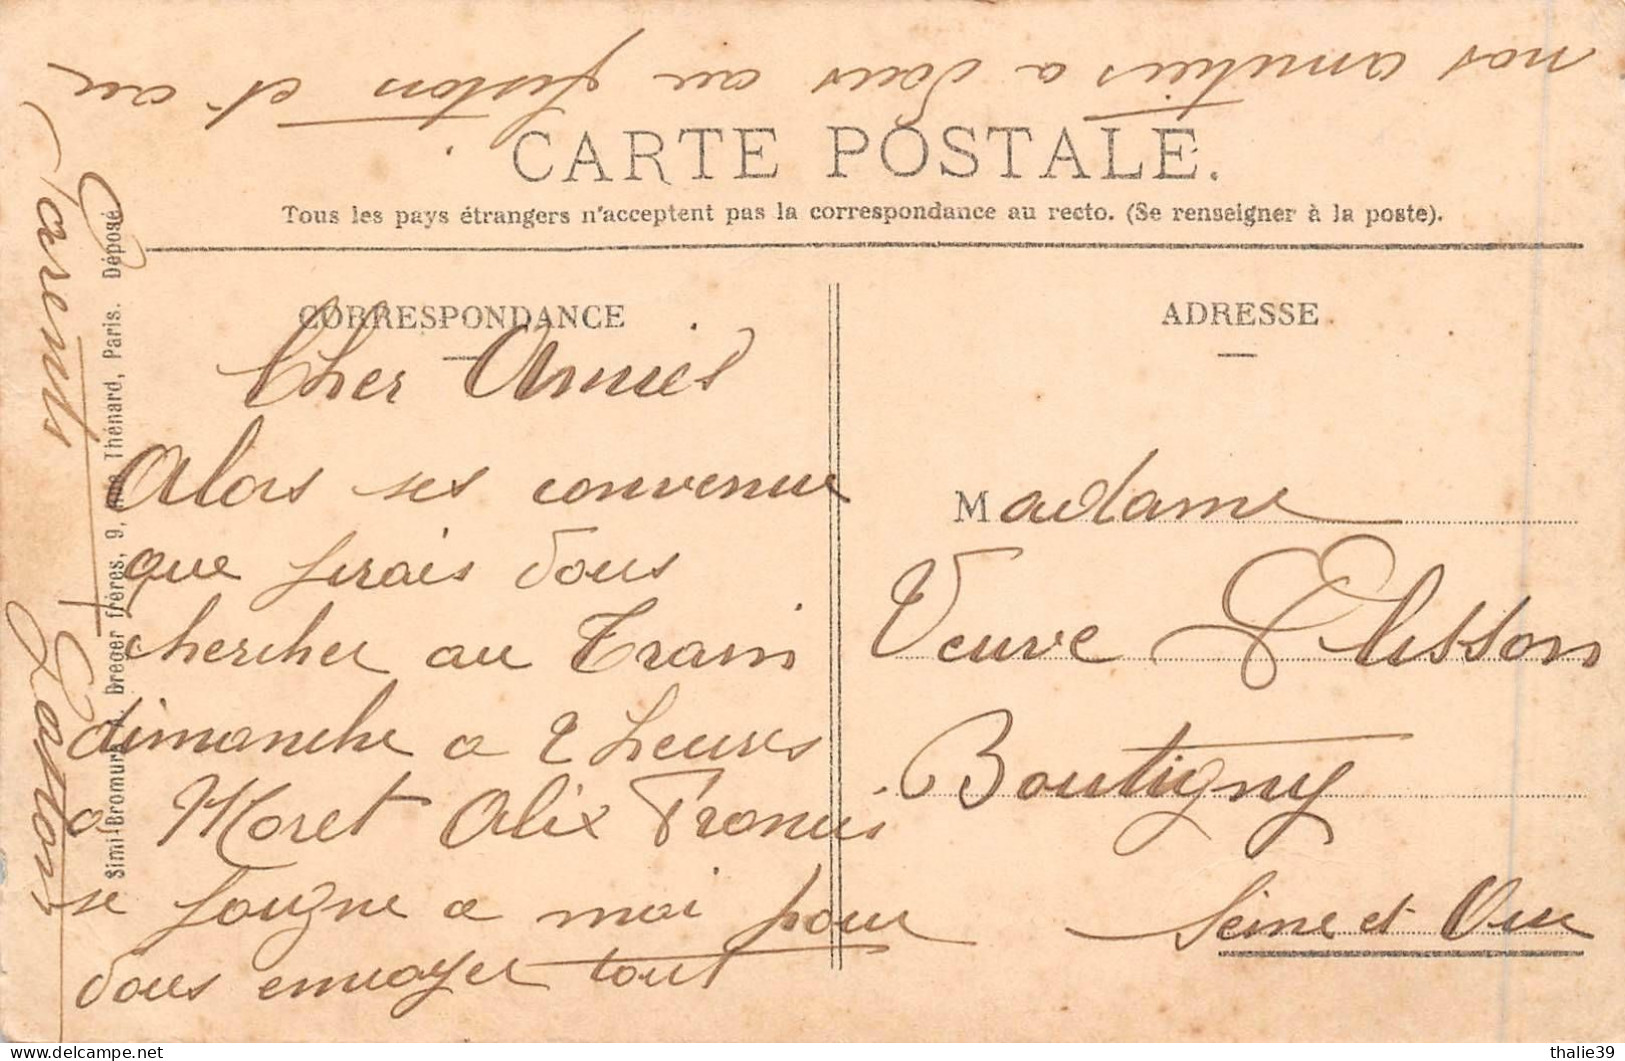 CARTE POSTALE.
Tous les pays étrangers n'acceptent pas la correspondance au recto. (Se renseigner à la poste).
CORRESPONDANCE
Cher Amies
Alors ses convenue
que jirais vous
chercher au Train
dimanche a 2 heures
a Moret Alix Francis
se joigne a moi pour
vous envoyer tout
nos amitiés a vous au fiston et au
parents
Gaston
ADRESSE
Madame
Veuve Elisson
Boutigny
Seine et Oise
Simi-Bromure A. Breger frères, 9, Rue Thénard, Paris. Déposé
thalie39